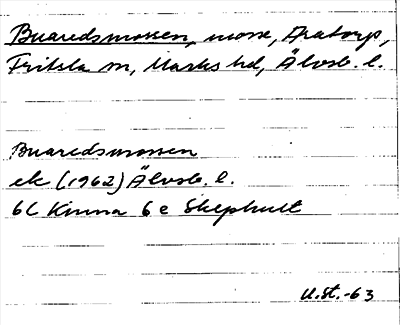 Buaredsmossen, mosse, Aratorp,
Fritsla sn, Marks hd, Älvsb. l.
Buaredsmossen
ek (1962) Älvsb. l.
6C Kinna 6 e Skephult
U.St.-63